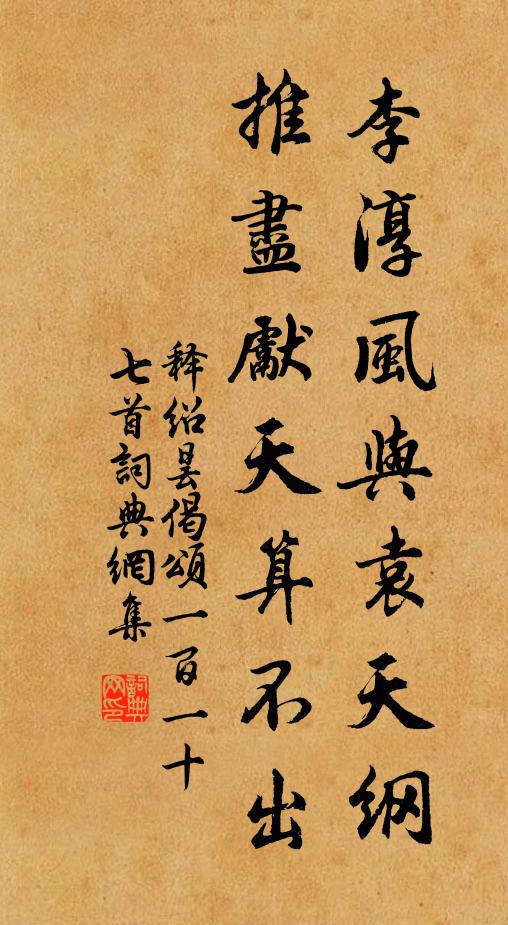 李淳風與袁天綱
推盡獻天算不出
释绍昙偈頌一百一十
七首詞典網集
詞典網印